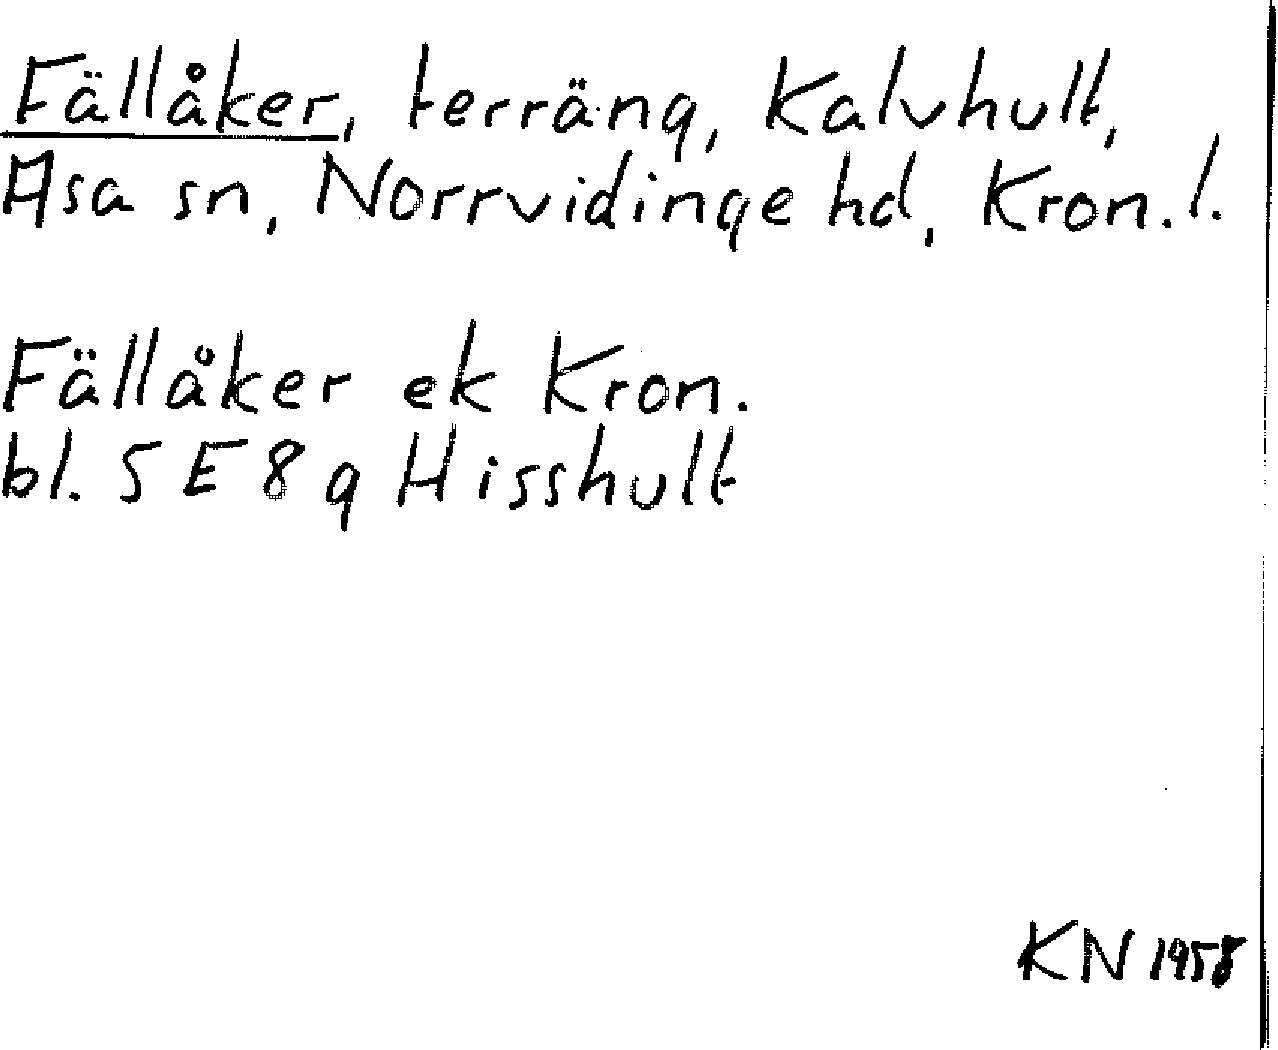 Fällåker, terräng, Kalvhult,
Asa sn, Norrvidinge hd, Kron. l.
Fällåker ek Kron.
bl. 5 E 8 g Hisshult
KN 1958